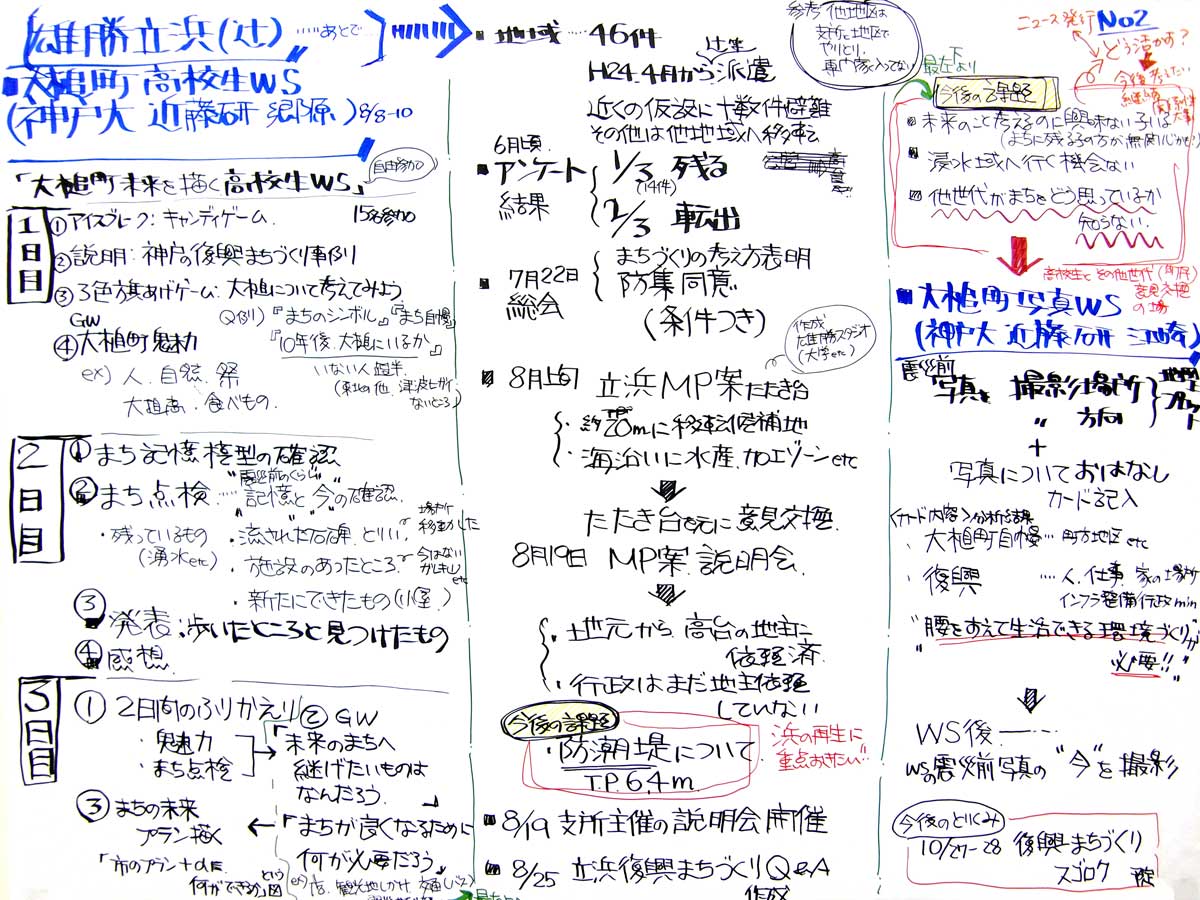 雄勝立浜(辻) ……あとで…
・大槌町 高校生WS
(神戸大 近藤研 郷原) 8/8-10
自由参加
「大槌町未来を描く高校生WS」
1日目
① アイスブレーク：キャンディゲーム. 15名参加
② 説明：神戸の復興まちづくり事例
③ 3色方其あげゲーム：大槌について考えてみよう
Q例)『まちのシンボル』『まち自慢』
『10年後、大槌にいるか』
いない人 過半
GW
④ 大槌町魅力
ex) 人. 自然. 祭
大槌高. 食べもの.
2日目
① まち記憶模型の確認
"震災前のくらし"
② まち点検 …… "記憶"と"今"の確認.
・残っているもの
(湧水etc)
・流された石碑. とりい.
場所が移動した
・施設のあったところ.
今はない
etc
・新たにできたもの(小屋)
③ 発表：歩いたところと見つけたもの
④ 感想.
3日目
① 2日間のふりかえり
・魅力
・まち点検
② GW
「未来のまちへ
継げたいものは
なんだろう.」
「まちが良くなるために
何が必要だろう」
③ まちの未来
プラン描く
・地域 … 46件
H24.4月から派遣
辻等
近くの仮設に十数件避難
その他は他地域へ移転
6月頃
・アンケート結果
1/3 残る
(14件)
2/3 転出
・7月22日
総会
まちづくりの考え方表明
防集同意
(条件つき)
作成
雄勝スタジオ
(大学etc)
・8月上旬 立浜MP案たたき台
・約20mに移転候補地
・海沿いに水産.加工ゾーンetc
たたき台を元に意見交換.
8月19日 MP案 説明会.
・地元から 高台の地主に
依頼済.
・行政はまだ地主依頼
していない
今後の課題
・防潮堤について
T.P.6.4m
浜の再生に
重点おきたい…
・8/19 支所主催の説明会開催
・8/25 立浜復興まちづくりQ&A
作成
参考 他地区は
支所と地区で
やりとり.
専門家入ってない
ニュース発行
No2
どう活かす?
今後考えたい
最左下より
今後の課題
・未来のこと考えるのに興味ない子いる
(まちに残る子の方が無関心かも)
・浸水域へ行く機会ない
・他世代がまちをどう思っているか
知らない.
高校生とその他世代(町民)
意見交換の場
・大槌町写真WS
(神戸大 近藤研 江崎)
震災前
写真を 撮影場所
〃 方向
地図上プロット
+
写真についておはなし
カード記入
<カード内容>分析結果
・大槌町自慢… 町方地区 etc
・復興 …. 人. 仕事. 家の場所
インフラ整備 行政 min
"腰をすえて生活できる環境づくりが
必要!!"
WS後 ……
WSの震災前写真の "今"を撮影
今後のとりくみ
10/27-28 復興まちづくり
スゴロク